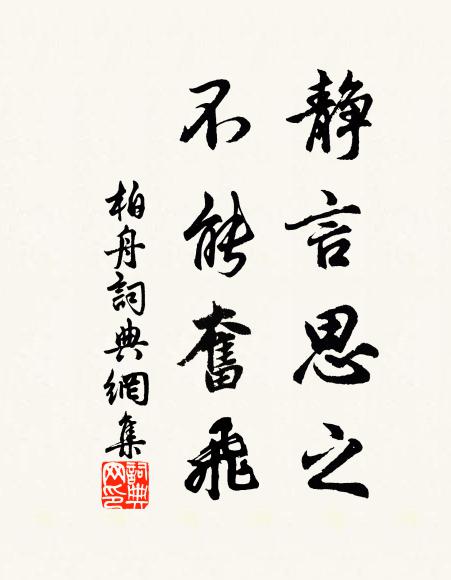 静言思之
不能奮飛
柏舟詞典網集
詞典网印